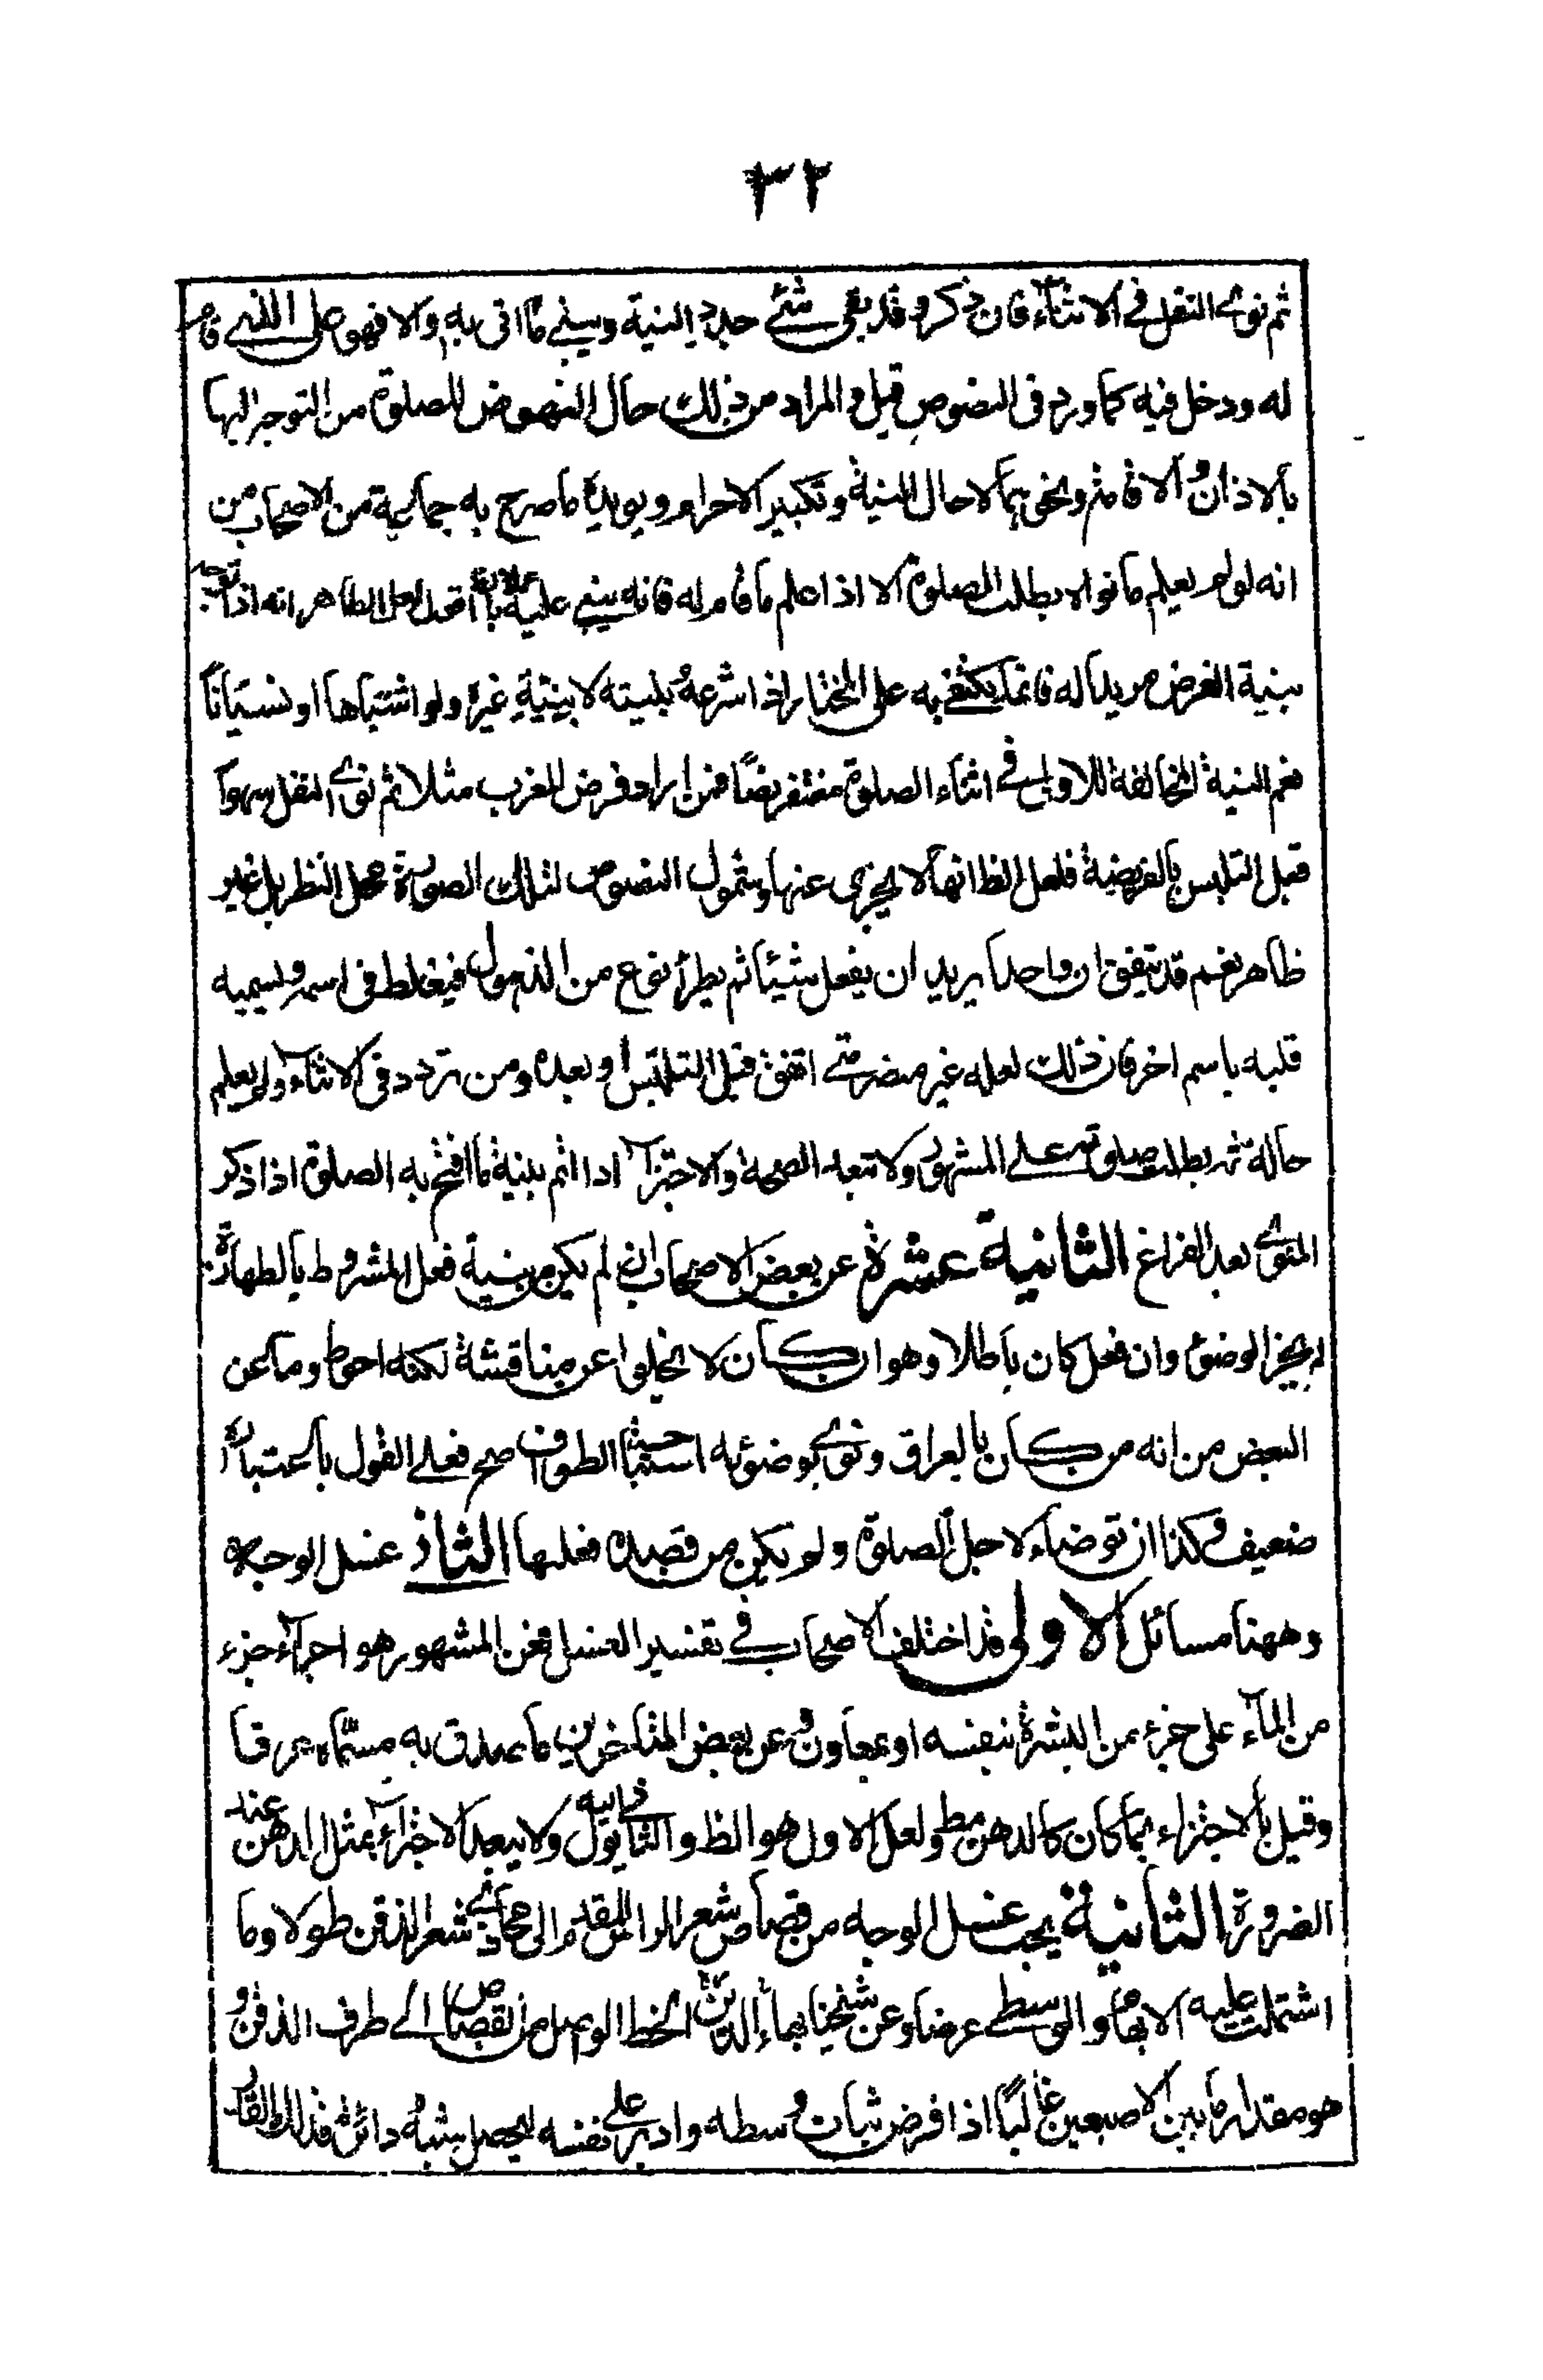 ٣٢
ثم نوى النفل فى الاثناء فان ذكر وقد بقى شئ جدد النية ويبنى ما اتى به والا فهو على التى قام
له ودخل فيه كما ورد فى النصوص قيل والمراد من ذلك حال النهوض للصلوة من التوجه اليها
بالاذان والاقامة ونحوهما لا حال النية وتكبير الاحرام ويؤيده ما صرح به جماعة من الاصحاب من
انه لو لم يعلم ما نواه بطلت الصلوة الا اذا علم ما قام له فانه يبنى عليه اقول لعل الظاهر انه اذا توجه
بنية الفرض مريدا له فانما يكتفى به على المختار اذا شرعه بنيته لا بنية غيره ولو اشتباها او نسيانا
نعم النية المخالفة للاولى فى اثناء الصلوة مغتفر نصا فمن اراد فرض المغرب مثلا ثم نوى النفل سهوا
قبل التلبس بالفريضة فلعل الظ انها لا يجزى عنها وشمول النصوص لتلك الصورة محل النظر بل غير
ظاهر نعم قد يتفق ان واحدا يريد ان يفعل شيئا ثم يطرأ نوع من الذهول فيغلط فى اسمه ويسميه
قلبه باسم اخر فان ذلك لعله غير مضر متى اتفق قبل التلبس او بعده ومن تردد فى الاثناء ولم يعلم
حالته بطلت صلوته على المشهور ولا تبعد الصحة والاجتزاء اذا اتم بنية ما افتتح به الصلوة اذا ذكر
المنوى بعد الفراغ الثانية عشرة عن بعض الاصحاب ان لم يكن من نية فعل المشروط بالطهارة
لم يجز الوضوء وان فعل كان باطلا وهو ان كان لا يخلوا عن مناقشة لكنه احوط وما عن
البعض من انه من كان بالعراق ونوى بوضوئه استباحة الطواف صح فعلى القول باعتباره
ضعيف وكذا ان توضاء لاجل الصلوة ولم يكن من قصده فعلها الثانى غسل الوجه
وههنا مسائل الاولى قد اختلف الاصحاب فى تفسير الغسل فعن المشهور هو اجراء جزء
من الماء على جزء من البشرة بنفسه او بمعاون وعن بعض المتاخرين ما يصدق به مسماه عرفا
وقيل بالاجتزاء بما كان كالدهن مط ولعل الاول هو الظ والثانى يؤل اليه ولا يبعد الاجتزاء بمثل الدهن عند
الضرورة الثانية يجب غسل الوجه من قصاص شعر الراس المقدم الى محاذى شعر الذقن طولا وما
اشتملت عليه الابهام والوسطى عرضا وعن شيخنا بهاء الدين الخط الواصل من القصاص الى طرف الذقن و
هو مقدار ما بين الاصبعين غالبا اذا فرض ثبات وسطه وادير على نفسه ليحصل شبه دائرة فذلك القدر